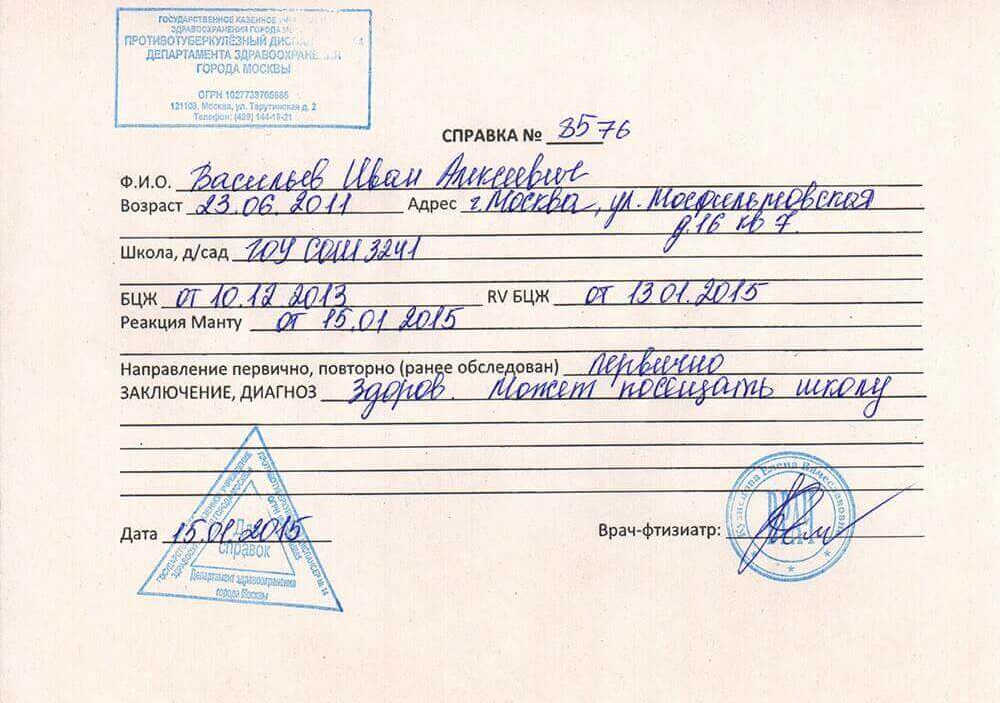 ГОСУДАРСТВЕННОЕ КАЗЕННОЕ
ЗДРАВООХРАНЕНИЯ ГОРОДА
ПРОТИВОТУБЕРКУЛЁЗНЫЙ 14
ДЕПАРТАМЕНТА ЗДРАВООХРАНЕНИЯ
ГОРОДА МОСКВЫ
ОГРН 1027739705685
121108, Москва, ул. Тарутинская д. 2
Телефон: (499) 144-19-21
СПРАВКА № 8576
Ф.И.О. Васильев Иван Алексеевич
Возраст 23.06.2011 Адрес г. Москва, ул. Мосфильмовская
д.16 кв 7.
Школа, д/сад ГОУ СОШ 3241
БЦЖ от 10.12 2013 RV БЦЖ от 13 01.2015
Реакция Манту от 15.01 2015
Направление первично, повторно (ранее обследован) первично
ЗАКЛЮЧЕНИЕ, ДИАГНОЗ Здоров. Может посещать школу
Дата 15.01.2015 Врач-фтизиатр:
Для
справок
Департамент здравоохранения
города Москвы
Елена Вячеславовна
ВРАЧ